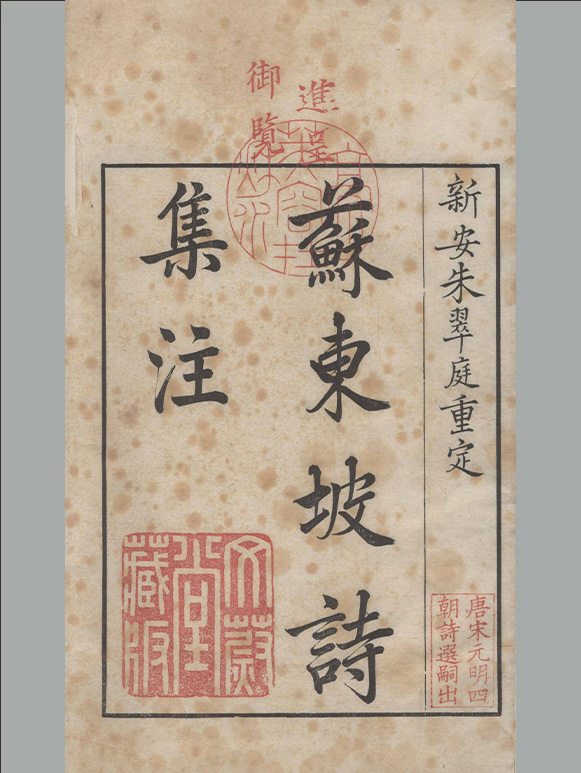 進呈
御覽
新安朱翠庭重定
唐宋元明四
朝詩選嗣出
蘇東坡詩
集注
文蔚
堂
藏版